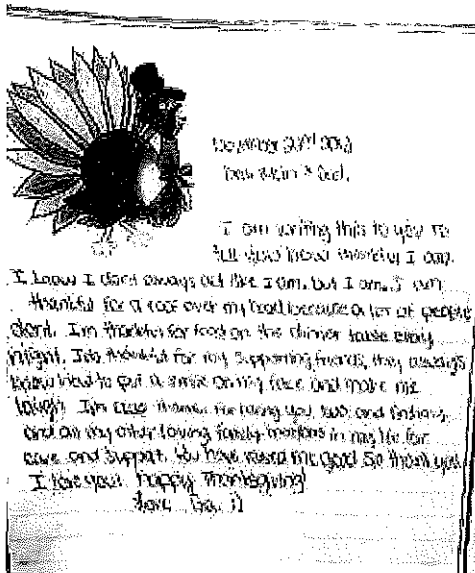 Mom & Dad,
I am writing this to you to
tell you how thankful I am.
I know I don't always act like I am, but I am. I am
thankful for a roof over my head because a lot of people
don't. I'm thankful for food on the dinner table every
night. I'm thankful for my supporting friends, they always
know how to put a smile on my face and make me
laugh. I'm also for having you two and
and all my other loving family members in my life for
care and support. You have raised me good so thank you!
I love you! Happy Thanksgiving!
Love,